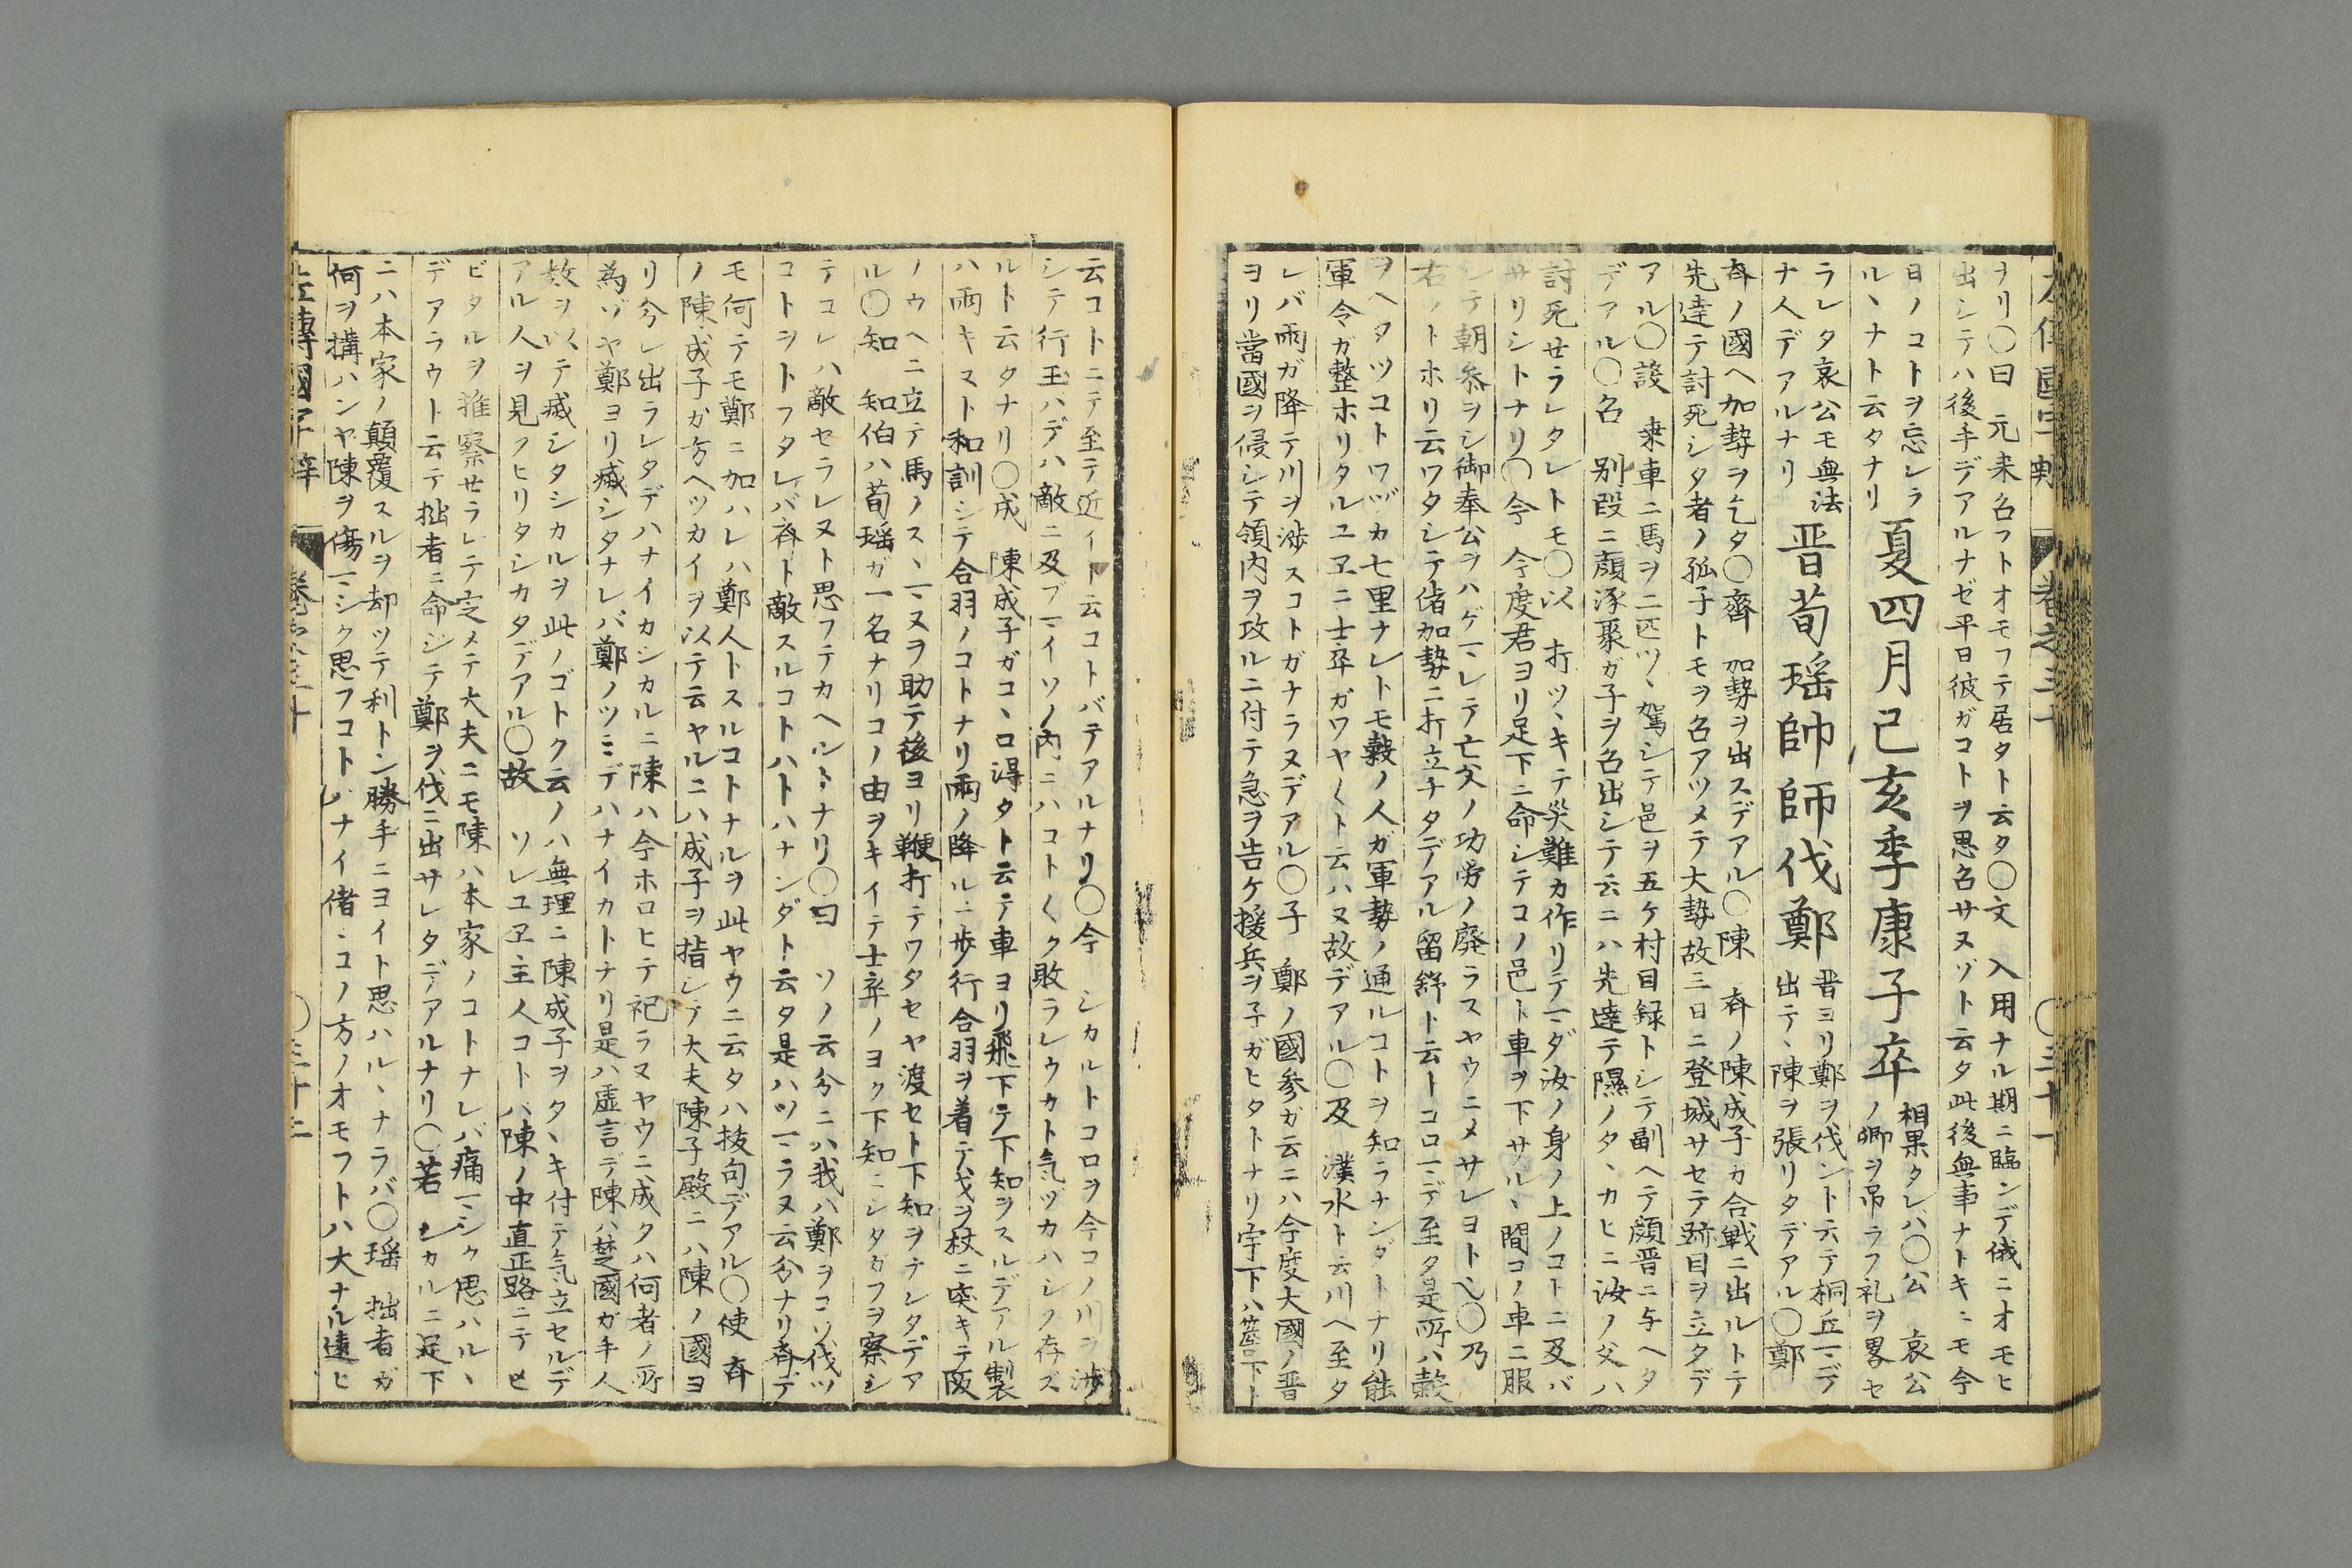 左傳國字辨 卷之三十 〇三十一
ナリ〇曰 元来名フトオモフテ居タト云タ〇文 入用ナル期ニ臨ンデ俄ニオモヒ
出シテハ後手デアルナゼ平日彼ガコトヲ思名サヌゾト云タ此後無事ナトキニモ今
日ノコトヲ忘レラ
ルヽナト云タナリ
夏四月己亥季康子卒
相果タレバ〇公 哀公
ノ卿ヲ吊ラフ礼ヲ畧セ
ラレタ哀公モ無法
ナ人デアルナリ
晋荀瑶帥師伐鄭
晋ヨリ鄭ヲ伐ントテ桐丘マデ
出テヽ陳ヲ張リタデアル〇鄭
斉ノ國ヘ加勢ヲ乞タ〇齊 加勢ヲ出スデアル〇陳 斉ノ陳成子カ合戦ニ出ルトテ
先達テ討死シタ者ノ孤子トモヲ名アツメテ大勢故三日ニ登城サセテ跡目ヲ立タデ
アル〇設 乗車ニ馬ヲ二匹ツヽ駕シテ邑ヲ五ケ村目録トシテ副ヘテ顔晋ニ与ヘタ
デアル〇名 別段ニ顔涿聚ガ子ヲ名出シテ云ニハ先達テ隰ノタヽカヒニ汝ノ父ハ
討死セラレタレトモ〇以 打ツヽキテ災難カ作リテマダ汝ノ身ノ上ノコトニ及バ
サリシトナリ〇今 今度君ヨリ足下ニ命シテコノ邑ト車ヲ下サルヽ間コノ車ニ服
シテ朝参ヲシ御奉公ヲハゲマレテ亡父ノ功勞ノ廃ラスヤウニメサレヨトヘ〇乃
右ノトホリ云ワタシテ偖加勢ニ打立チタデアル留舒ト云トコロマデ至タ是所ハ穀
ヲヘタツコトワヅカ七里ナレトモ穀ノ人ガ軍勢ノ通ルコトヲ知ラナンダトナリ能
軍令ガ整ホリタルユヱニ士卒ガワヤ〱ト云ハヌ故デアル〇及 濮水ト云川ヘ至タ
レバ雨ガ降テ川ヲ渉スコトガナラヌデアル〇子 鄭ノ國参ガ云ニハ今度大國ノ晋
ヨリ當國ヲ侵シテ領内ヲ攻ルニ付テ急ヲ告ケ援兵ヲ子ガヒタトナリ宇下ハ簷下ト
云コトニテ至テ近イト云コトバテアルナリ〇今 シカルトコロヲ今コノ川ヲ渉
シテ行玉ハデハ敵ニ及ブマイソノ内ニハコト〱ク敗ラレウカト気ヅカハシク存ズ
ルト云タナリ〇成 陳成子ガコヽロ得タト云テ車ヨリ飛下テ下知ヲスルデアル製
ハ雨キヌト和訓シテ合羽ノコトナリ雨ノ降ルニ歩行合羽ヲ着テ戈ヲ杖ニ突キテ阪
ノウヘニ立テ馬ノスヽマヌヲ助テ後ヨリ鞭打テワタセヤ渡セト下知ヲナシタデア
ル〇知 知伯ハ荀瑶ガ一名ナリコノ由ヲキイテ士卒ノヨク下知ニシタガフヲ察シ
テコレハ敵セラレヌト思フテカヘルトナリ〇曰 ソノ云分ニハ我ハ鄭ヲコソ伐ツ
コトヲトフタレバ斉ト敵スルコトハトハナンダト云タ是ハツマラヌ云分ナリ斉デ
モ何テモ鄭ニ加ハレハ鄭人トスルコトナルヲ此ヤウニ云タハ抜句デアル〇使 斉
ノ陳成子ガ方ヘツカイヲ以テ云ヤルニハ成子ヲ指シテ大夫陳子殿ニハ陳ノ國ヨ
リ分レ出ラレタデハナイカシカルニ陳ハ今ホロヒテ祀ラヌヤウニ成タハ何者ノ所
為ゾヤ鄭ヨリ滅シタナレバ鄭ノツミデハナイカトナリ是ハ虚言デ陳ハ楚國ガ手人
数ヲ以テ滅シタシカルヲ此ノゴトク云ノハ無理ニ陳成子ヲタヽキ付テ気立セルデ
アル人ヲ見フヒリタシカタデアル〇故 ソレユヱ主人コトバ陳ノ中直正路ニテヒ
ビタルヲ推察セラレテ定メテ大夫ニモ陳ハ本家ノコトナレバ痛マシク思ハルヽ
デアラウト云テ拙者ニ命ジテ鄭ヲ伐ニ出サレタデアルナリ〇若 シカルニ足下
ニハ本家ノ顛覆スルヲ却ツテ利トン勝手ニヨイト思ハルヽナラバ〇瑶 拙者ガ
何ヲ搆ハンヤ陳ヲ傷マシク思フコトバナイ偖ヽコノ方ノオモフトハ大ナル遠ヒ
左傳國字辨 卷之三十 〇三十二